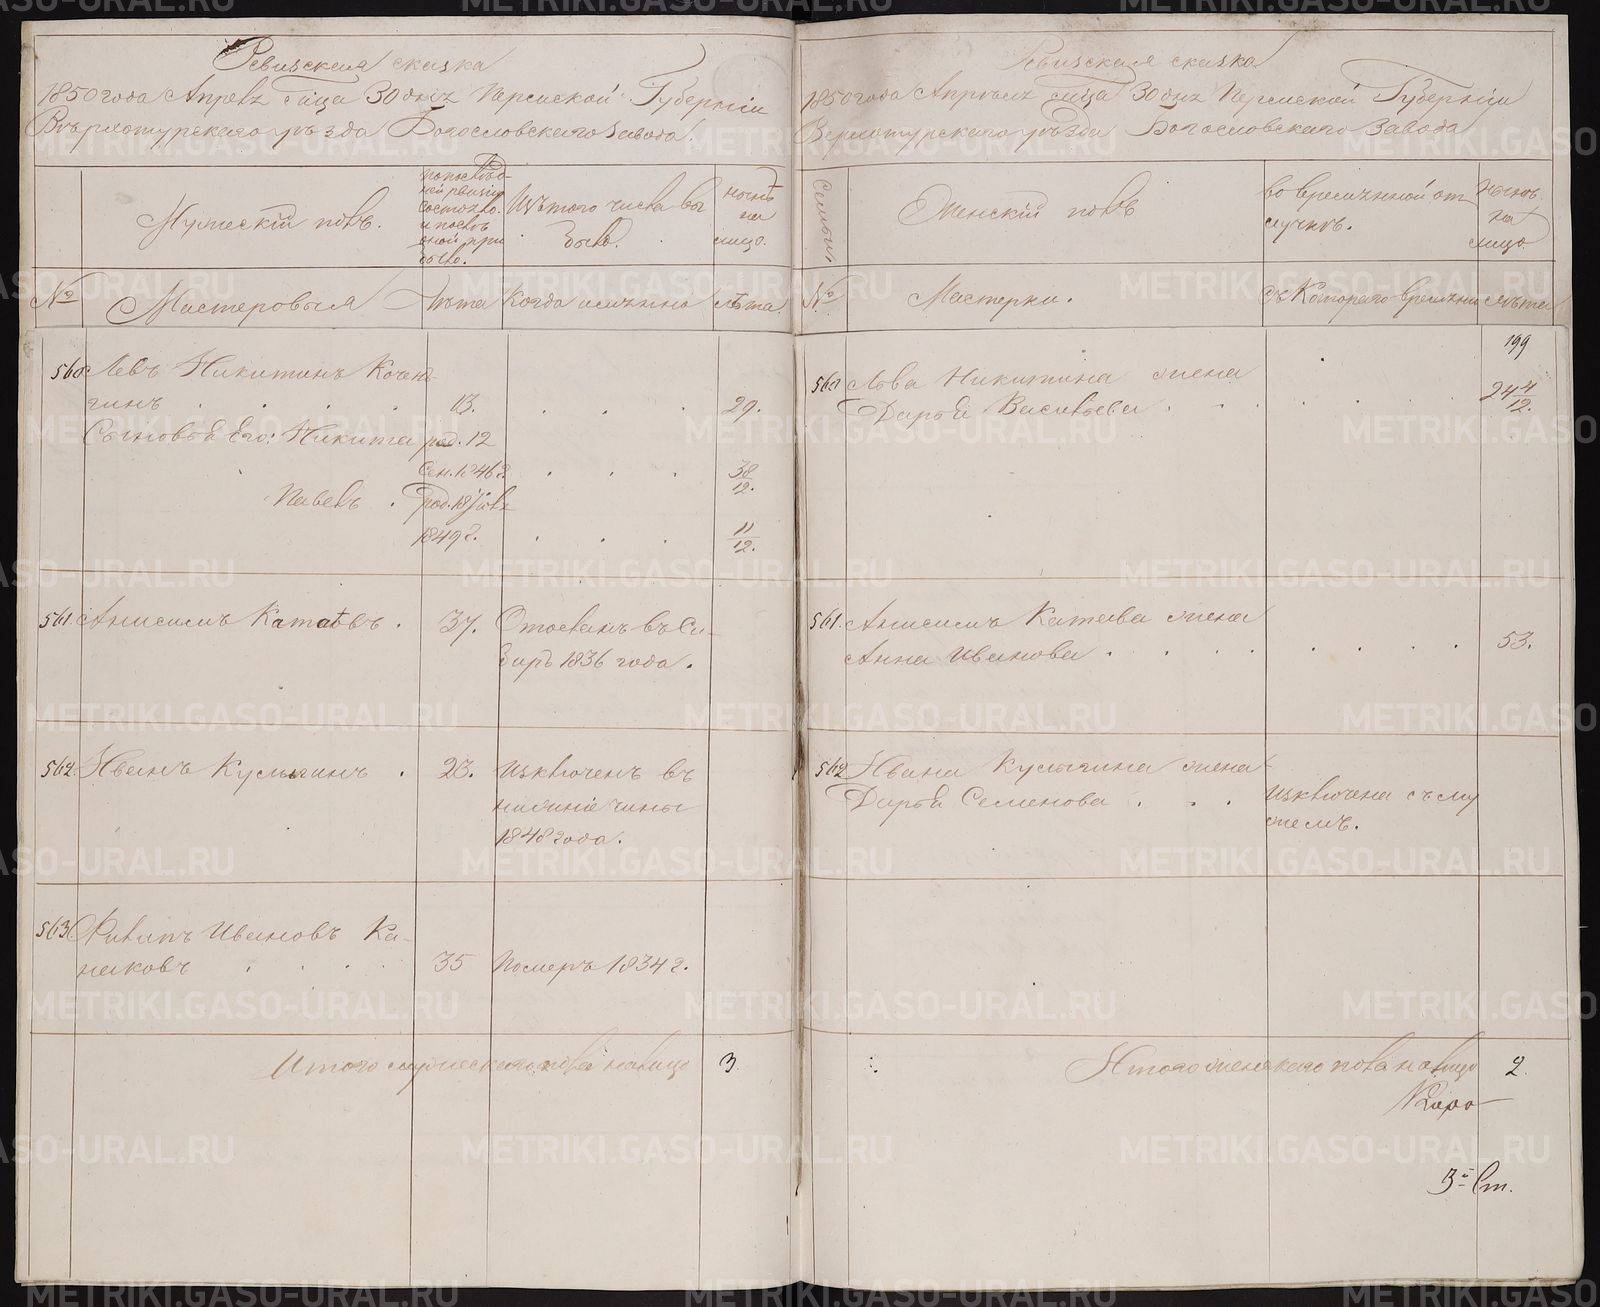 Ревизская сказка
1850 года Апреля м-ца 30 дня Пермской Губернии
Верхотурского уезда Богословского завода.
Мужеский полъ.
Изъ того числа вы
было.
ныне
на
лицо.
№
Мастеровыя
Лѣта
Когда именно
лѣта.
560 Левъ Никитинъ
гинъ . . . . 13. . . . 29.
Сыновья Его: Никита род. 12
Сен. 1846 г. . . . 3 8/12.
Павелъ . род. 18
1849 г. . . . 11/12.
561. Анисимъ Катаевъ . 37. Отосланъ въ Си-
бирь 1836 года.
562 Иванъ Кулыгинъ . 23. Изключенъ въ
нижние чины
1848 года.
563. Филипъ Ивановъ Ка-
наковъ . . . . 35 Померъ 1834 г.
Итого мужеского пола налицо 3
Ревизская сказка
1850 года Апреля м-ца 30 дня Пермской Губернии
Верхотурского уезда Богословского Завода
Семьи
Женский полъ
во временной от
лучкѣ.
Ныне
на
лицо
№
Мастерки.
съ Которого времени
лѣта
199
560 Льва Никитина жена
Дарья Васильева . . . . . 24 4/12.
561. Анисимъ Катаева жена
Анна Иванова . . . . . . . . 53.
562 Ивана Кулыгина жена
Дарья Семенова . . . Изключена съ му
жемъ.
Итого женского пола налицо 2
3-й Ст.
METRIKI.GASO-URAL.RU